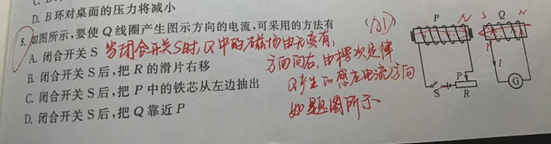 D. B环对桌面的压力将减小
5. 如图所示,要使 Q 线圈产生图示方向的电流,可采用的方法有
A. 闭合开关 S
B. 闭合开关 S 后,把 R 的滑片右移
C. 闭合开关 S 后,把 P 中的铁芯从左边抽出
D. 闭合开关 S 后,把 Q 靠近 P
当闭合开关S时,Q中的磁场由无变有,
方向向右,由楞次定律
Q产生的感应电流方向
如题图所示
P N S Q N
I I
S P R G